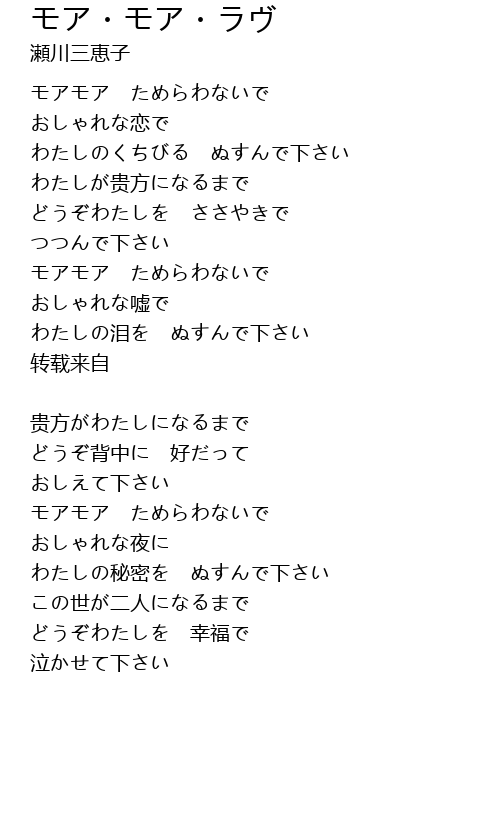 モア・モア・ラヴ
瀬川三恵子
モアモア　ためらわないで
おしゃれな恋で
わたしのくちびる　ぬすんで下さい
わたしが贵方になるまで
どうぞわたしを　ささやきで
つつんで下さい
モアモア　ためらわないで
おしゃれな嘘で
わたしの泪を　ぬすんで下さい
转载来自
贵方がわたしになるまで
どうぞ背中に　好だって
おしえて下さい
モアモア　ためらわないで
おしゃれな夜に
わたしの秘密を　ぬすんで下さい
この世が二人になるまで
どうぞわたしを　幸福で
泣かせて下さい